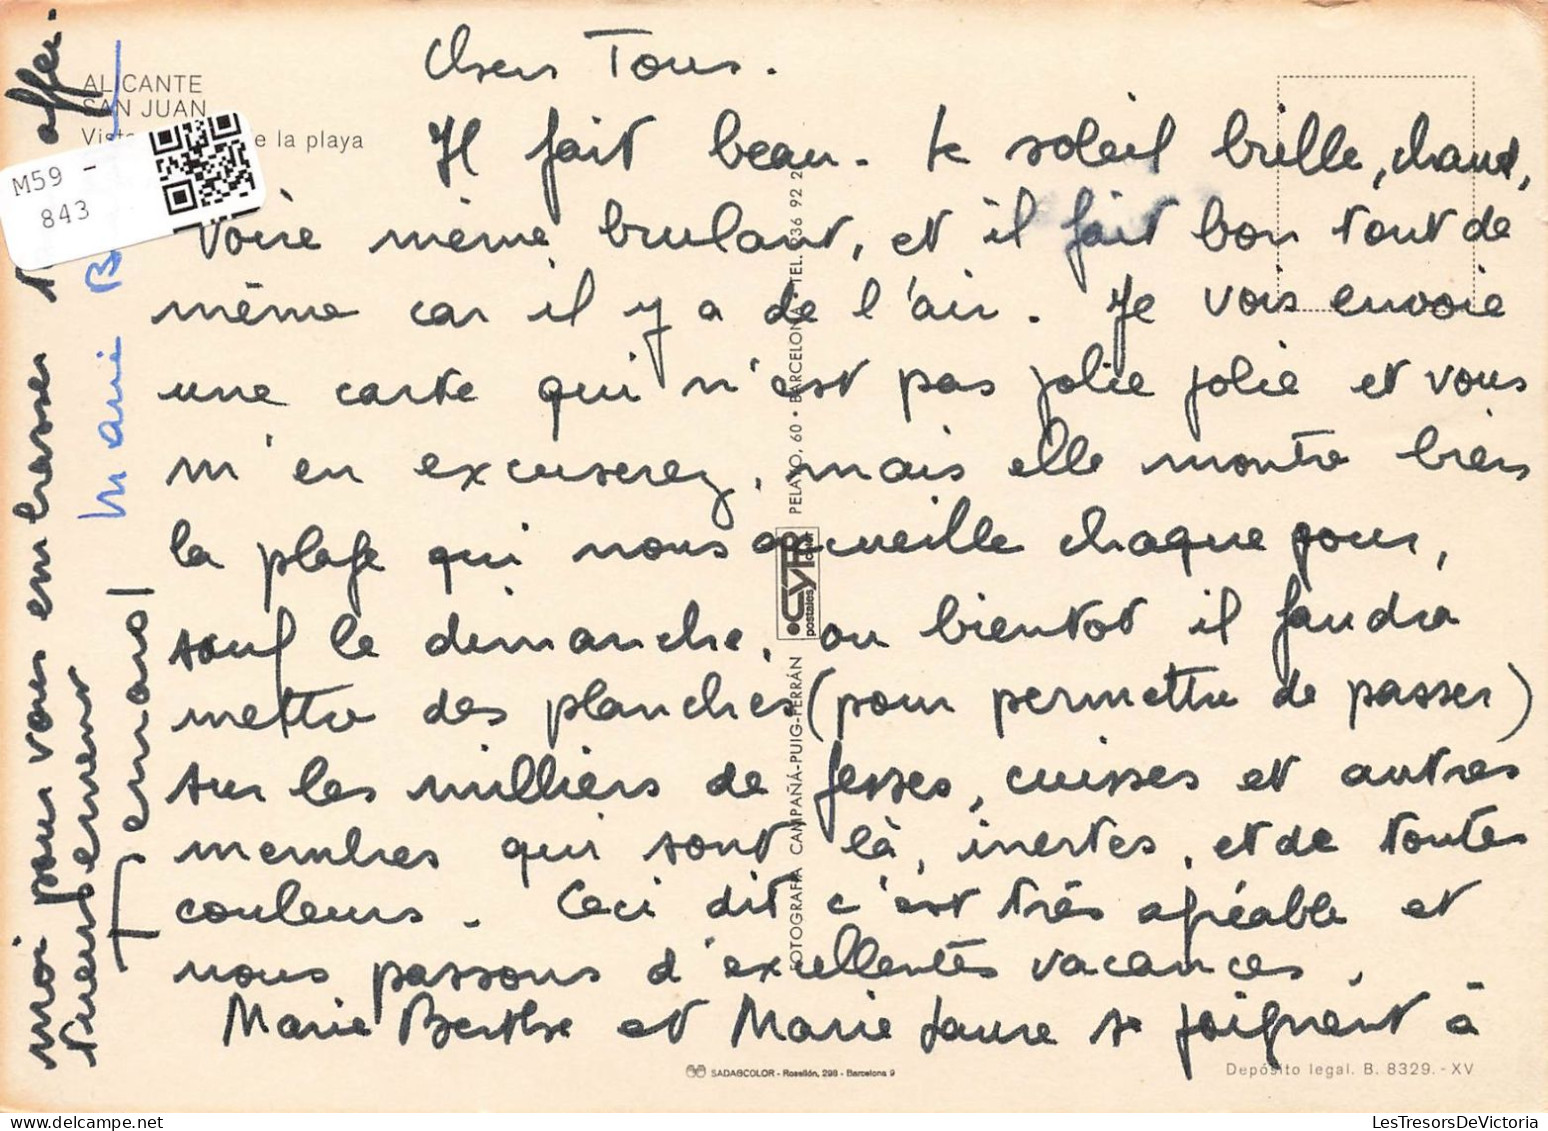 ALICANTE
SAN JUAN
Vista e la playa
M59 -
843
Chers Tous.
Il fait beau. le soleil brille, chaud,
voire même brulant, et il fait bon tout de
même car il y a de l'air. Je vois envoie
une carte qui n'est pas jolie jolie et vous
m'en excuserez, mais elle montre bien
la plage qui nous accueille chaque jour,
sauf le dimanche, ou bientot il faudra
mettre des planches (pour permettre de passer)
sur les milliers de fesses, cuisses et autres
membres qui sont là, inertes, et de toutes
couleurs. Ceci dit c'est très agréable et
nous passons d'excellentes vacances.
Marie Berthe et Marie Laure se joignent à
moi pour vous embrasser affec-
tueusement
Fernand
Marie B
FOTOGRAFIA CAMPAÑÁ-PUIG-FERRÁN
CYP
postales color
PELAYO, 60 • BARCELONA • TEL. 236 92 2
SADAGCOLOR - Rosellón, 298 - Barcelona 9
Depósito legal. B. 8329. - XV
LesTresorsDeVictoria